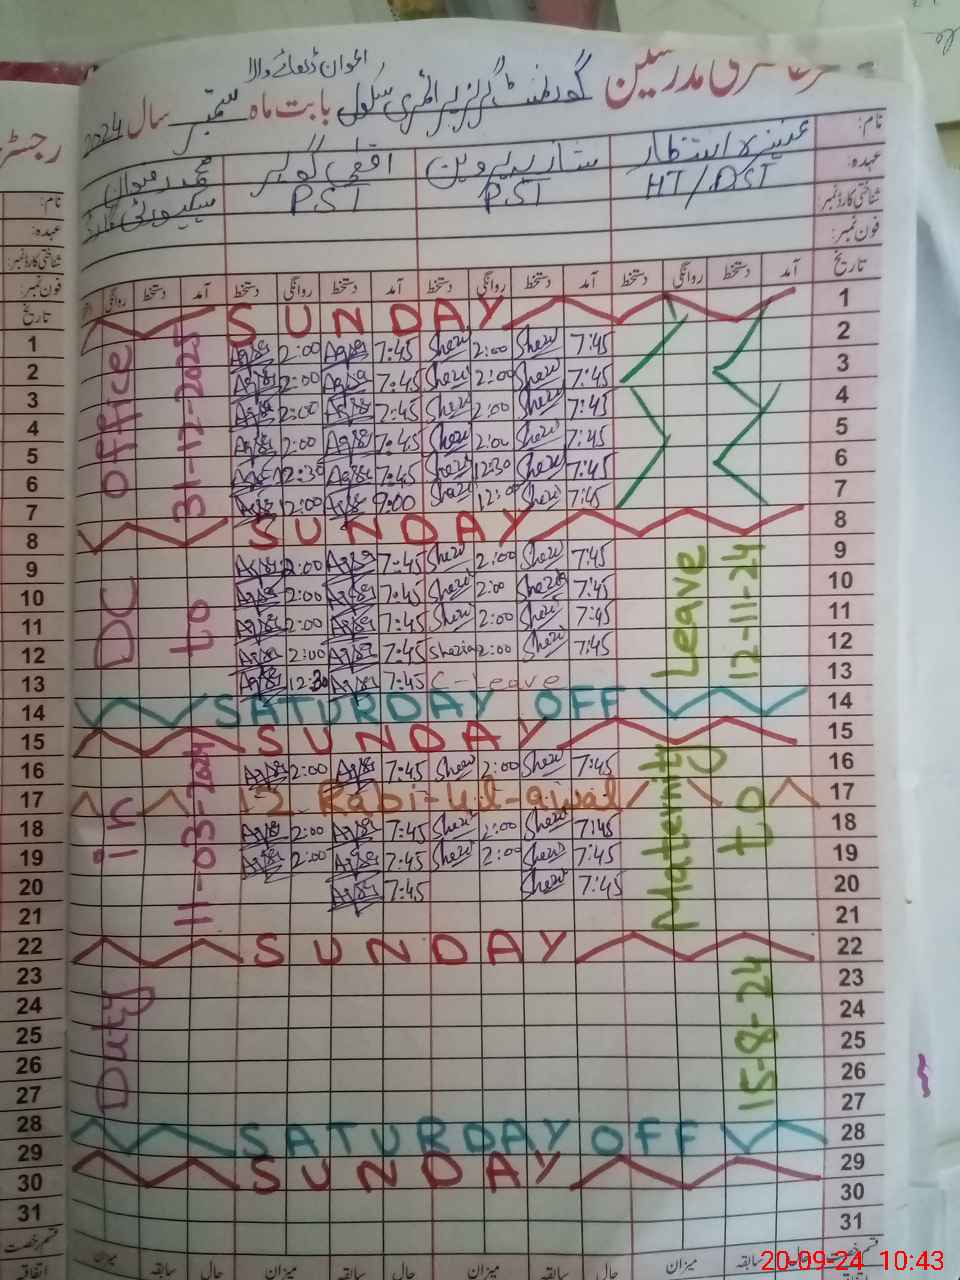 گورنمنٹ گرلز پرائمری سکول بابت ماہ ستمبر سال 2024
نام:
عہدہ:
HT/DST PST PST
شناختی کارڈ نمبر:
فون نمبر:
تاریخ آمد دستخط روانگی دستخط آمد دستخط روانگی دستخط آمد دستخط روانگی دستخط آمد دستخط روانگی
1 SUNDAY
2 7:45 Shezi 2:00 Shezi 7:45 Aqsa 2:00 Aqsa
3 7:45 Shezi 2:00 Shezi 7:45 Aqsa 2:00 Aqsa
4 7:45 Shezi 2:00 Shezi 7:45 Aqsa 2:00 Aqsa
5 7:45 Shezi 2:00 Shezi 7:45 Aqsa 2:00 Aqsa
6 7:45 Shezi 12:30 Shezi 7:45 Aqsa 12:30 Aqsa
7 7:45 Shezi 12:00 Shezi 9:00 Aqsa 12:00 Aqsa
8 SUNDAY
9 7:45 Shezi 2:00 Shezi 7:45 Aqsa 2:00 Aqsa
10 7:45 Shezia 2:00 Shezi 7:45 Aqsa 2:00 Aqsa
11 7:45 Shezi 2:00 Shezi 7:45 Aqsa 2:00 Aqsa
12 7:45 Shezi 2:00 Shezia 7:45 Aqsa 2:00 Aqsa
13 C-Leave 7:45 Aqsa 12:30 Aqsa
14 SATURDAY OFF
15 SUNDAY
16 7:45 Shezi 2:00 Shezi 7:45 Aqsa 2:00 Aqsa
17 12 Rabi-ul-awal
18 7:45 Shezi 2:00 Shezi 7:45 Aqsa 2:00 Aqsa
19 7:45 Shezi 2:00 Shezi 7:45 Aqsa 2:00 Aqsa
20 7:45 Shezi 7:45 Aqsa
21
22 SUNDAY
23
24
25
26
27
28 SATURDAY OFF
29 SUNDAY
30
31
Maternity Leave
15-8-24 to 12-11-24
Duty in DC office
11-03-2024 to 31-12-2025
قسم رخصت حال سابقہ میزان حال سابقہ میزان حال سابقہ میزان
رجسٹر
نام:
عہدہ:
شناختی کارڈ نمبر:
فون نمبر:
تاریخ
1
2
3
4
5
6
7
8
9
10
11
12
13
14
15
16
17
18
19
20
21
22
23
24
25
26
27
28
29
30
31
قسم رخصت
اتفاقیہ
20-09-24 10:43